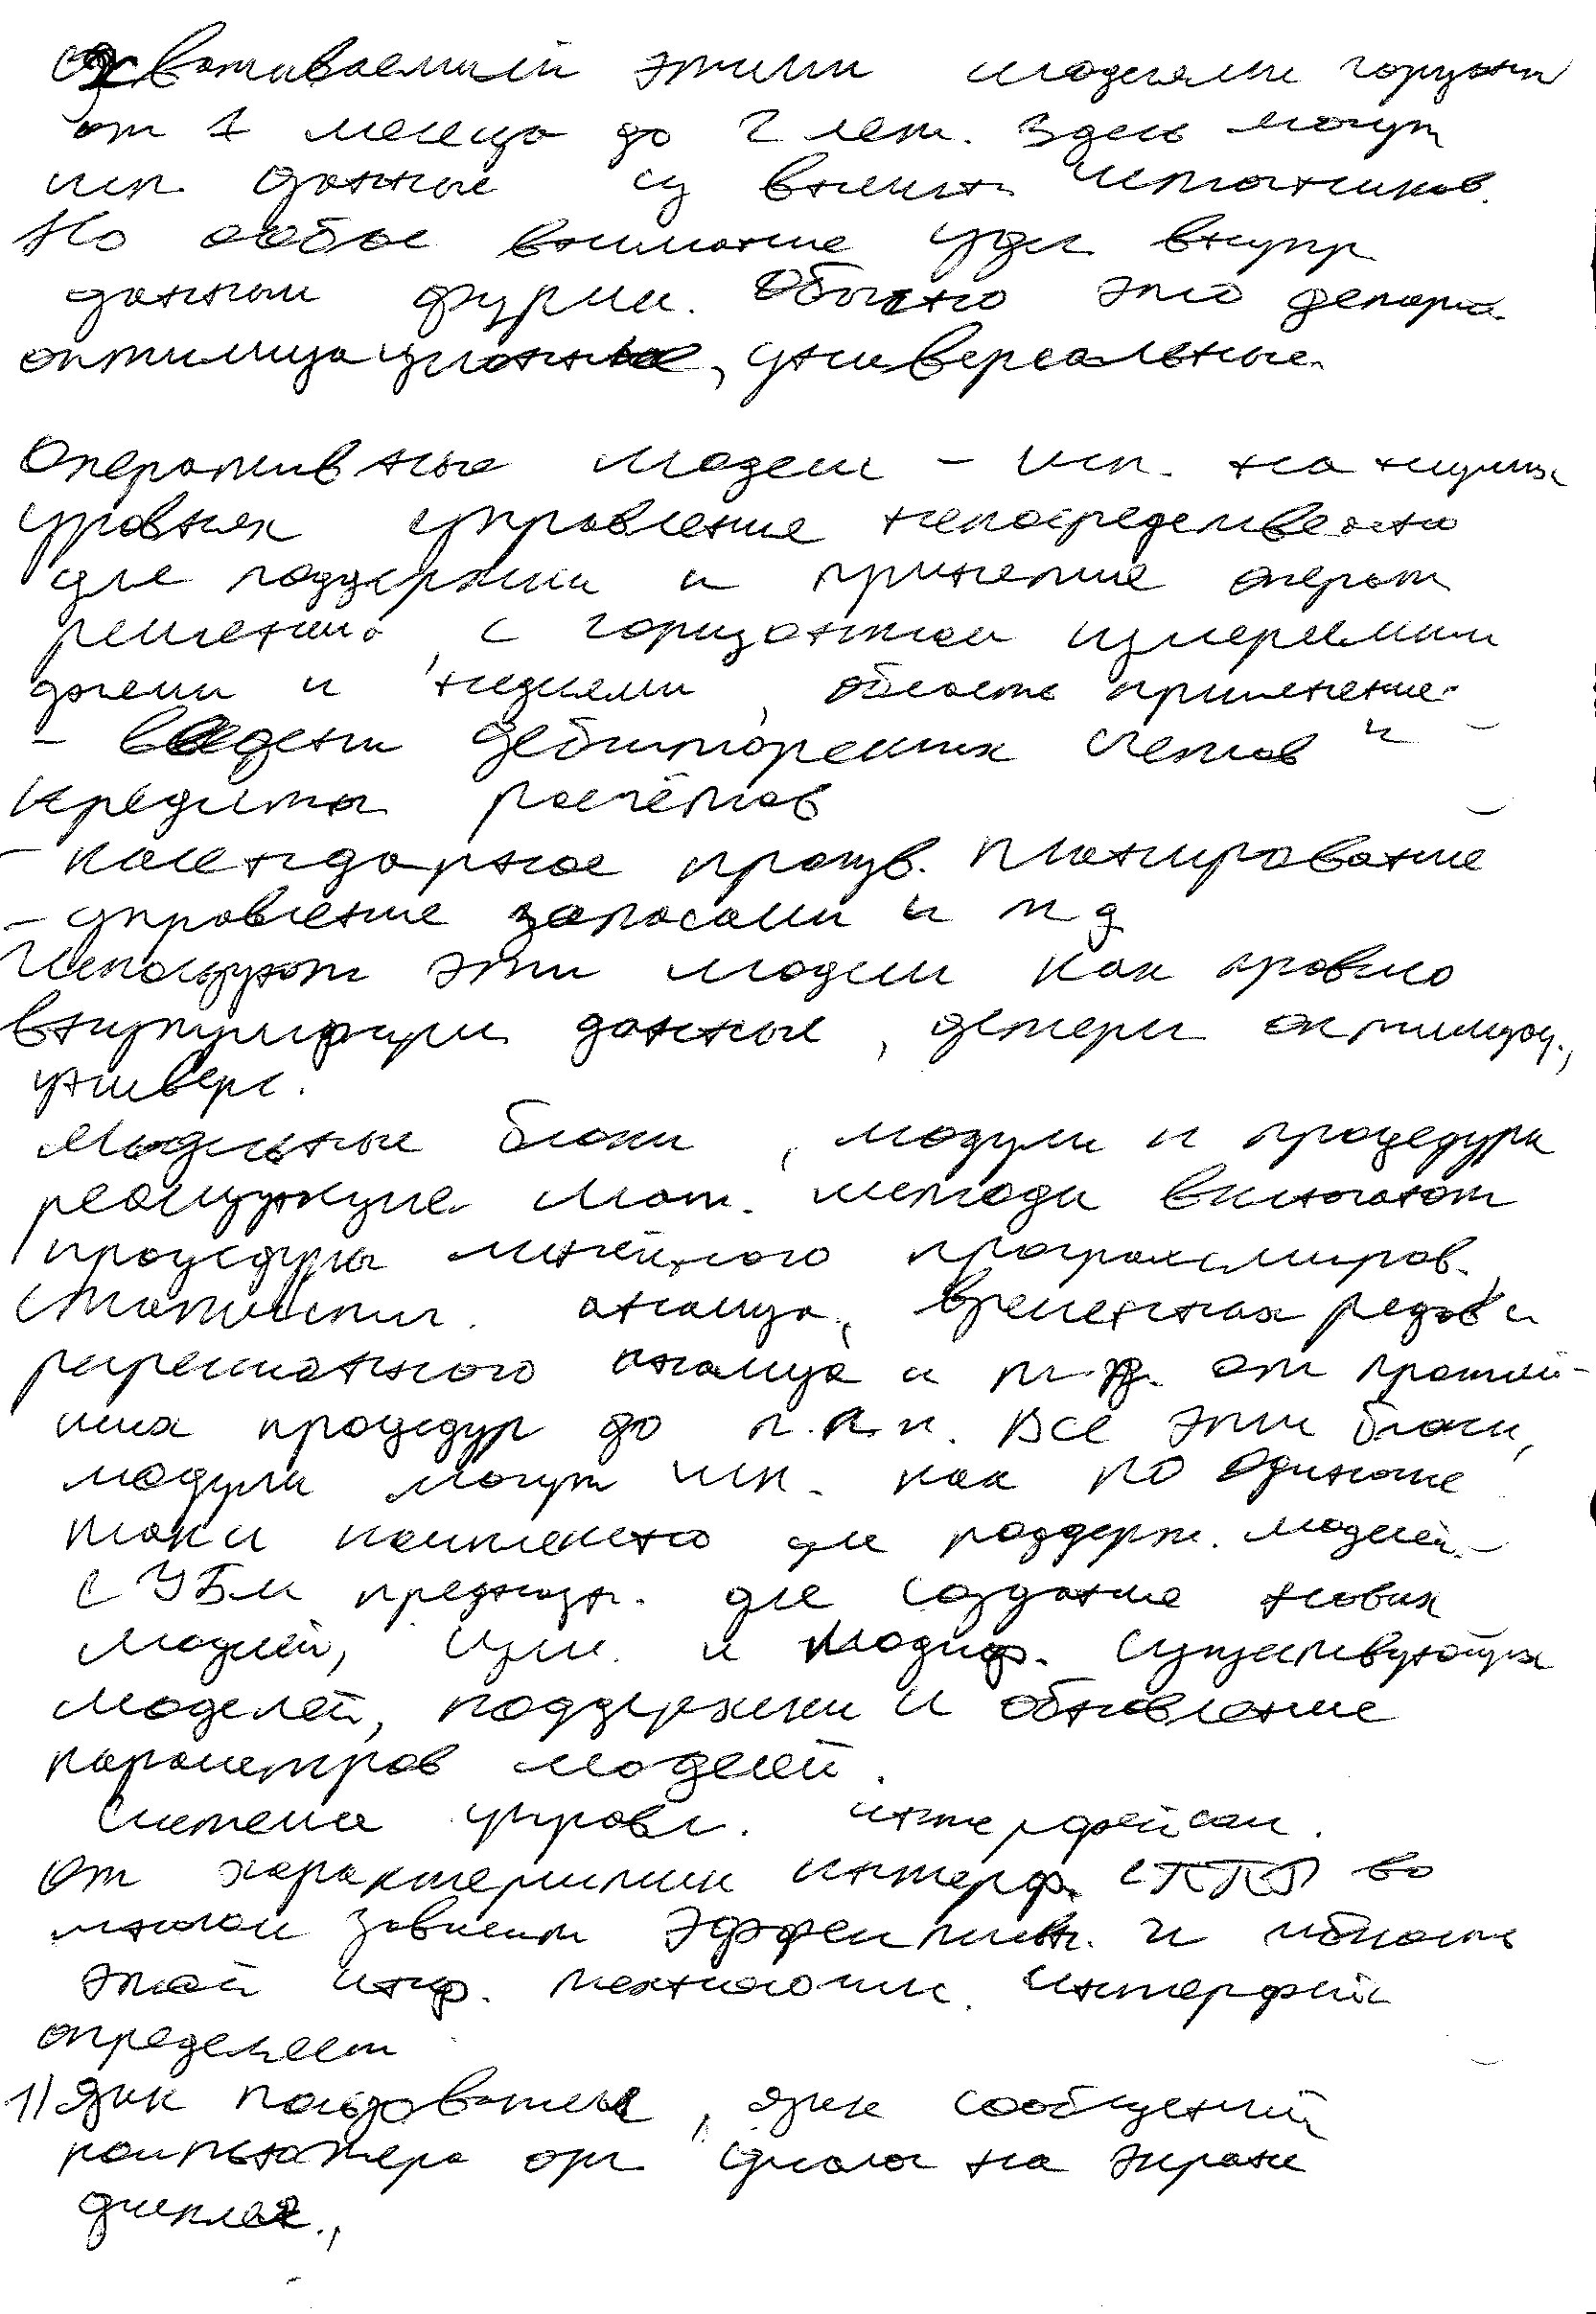 охватываемый этими моделями горизонт
от 1 месяца до 2 лет. Здесь могут
исп. данные из внешн источников.
Но особое внимание удел внутр
данным фирмы. Обычно это детерм.
оптимизационные, универсальные.
Оперативные модели - исп. на низших
уровнях управление непосредственно
для поддержки и принятие операт
решений, с горизонтом измеряемым
днями и неделями, область применение:
- ведени дебиторских счетов и
кредитн расчётов
- календарное произв. планирование
- управление запасами и т д
Использует эти модели как правило
внутрифирм данные, детерм оптимизац.,
универс.
Модельные блоки, модули и процедуры
реализующие мат. методы включают
процедуры линейного программиров.,
статистич. анализа, временных рядов и
регрессионного анализа и т.д. от простей-
ших процедур до п.п.п. Все эти блоки,
модули могут исп. как по одиночке
так и комплексно для поддерж. моделей.
СУБМ предназн. для создание новых
моделей, изм. и модиф. существующих
моделей, поддержки и обновление
параметров моделей.
Система управл. интерфейсом.
От характеристики интерф. СППР во
многом зависит эффективн. и гибкость
этой инф. технологии. Интерфейс
определяет
1) Язык пользователя, язык сообщений
компьютера орг. диалог на экране
дисплея.,